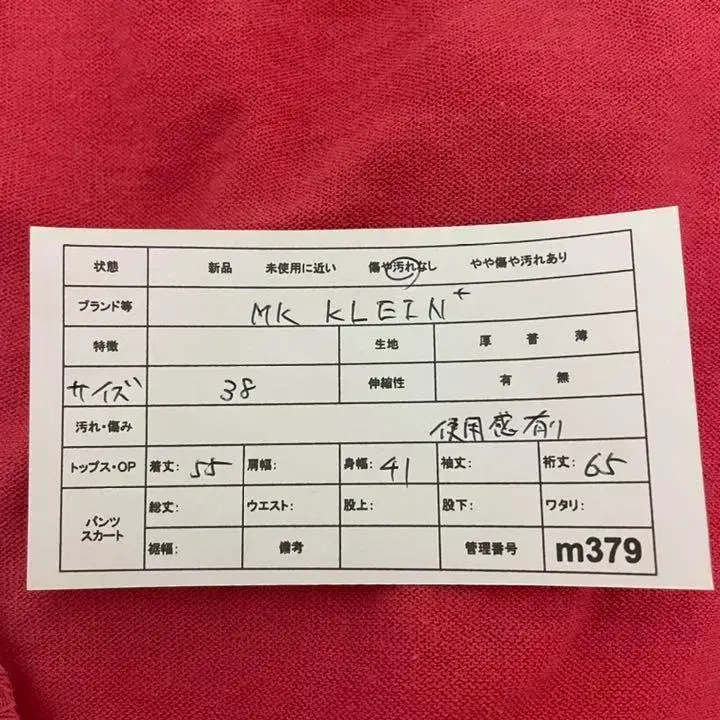 状態 新品 未使用に近い 傷や汚れなし やや傷や汚れあり
ブランド等 MK KLEIN+
特徴 生地 厚 普 薄
サイズ 38 伸縮性 有 無
汚れ・傷み 使用感有り
トップス・OP 着丈: 55 肩幅: 身幅: 41 袖丈: 裄丈: 65
パンツ スカート 総丈: ウエスト: 股上: 股下: ワタリ:
裾幅: 備考 管理番号 m379